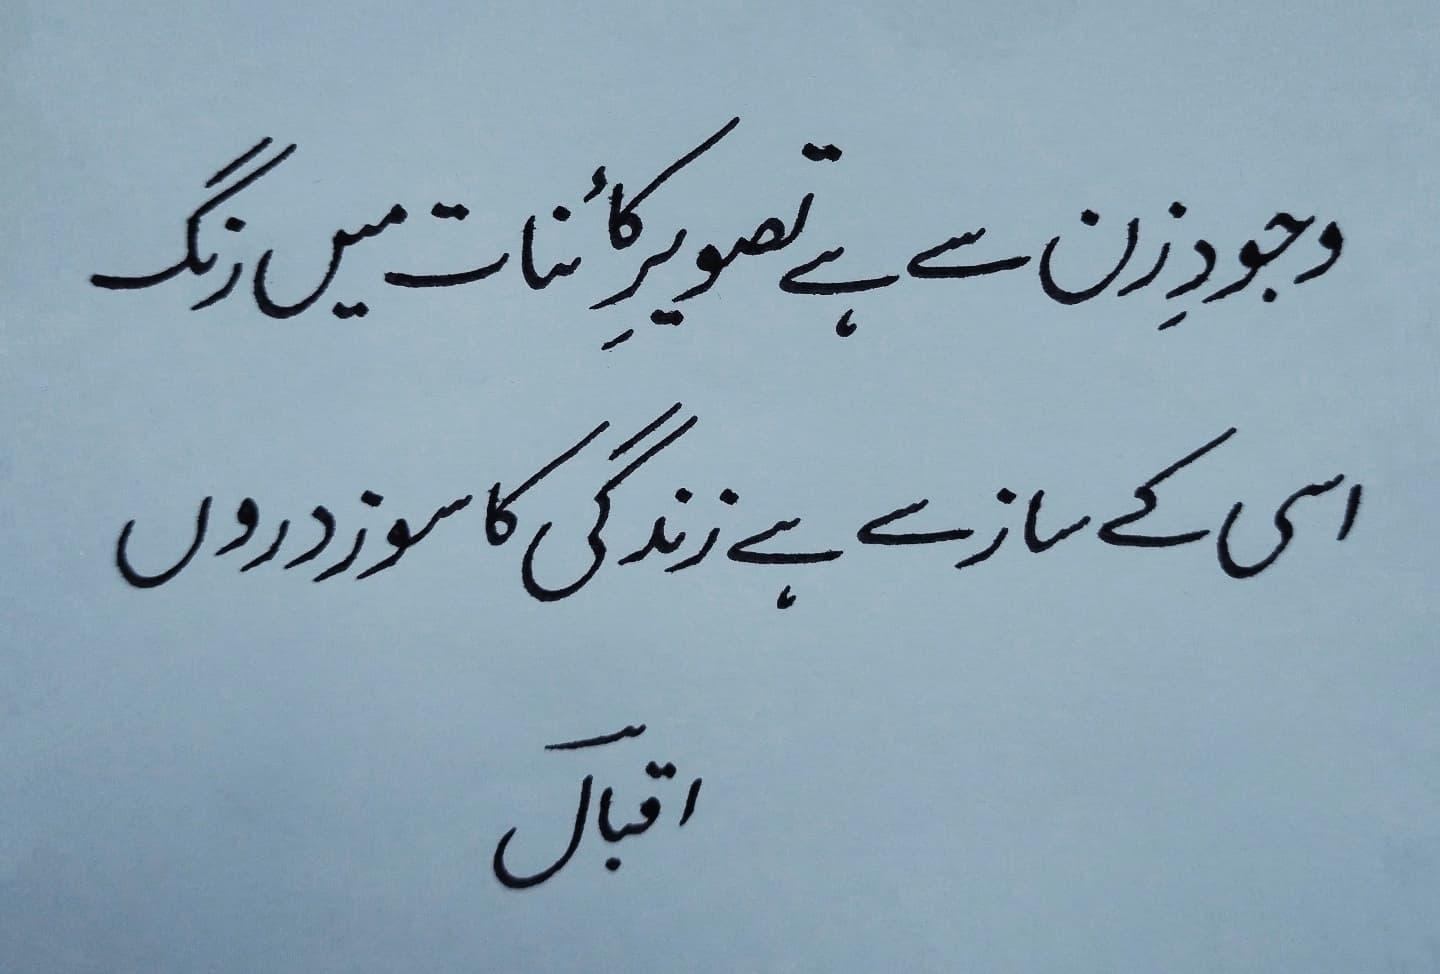 وجودِ زن سے ہے تصویرِ کائنات میں رنگ
اسی کے ساز سے ہے زندگی کا سوز دروں
اقبال